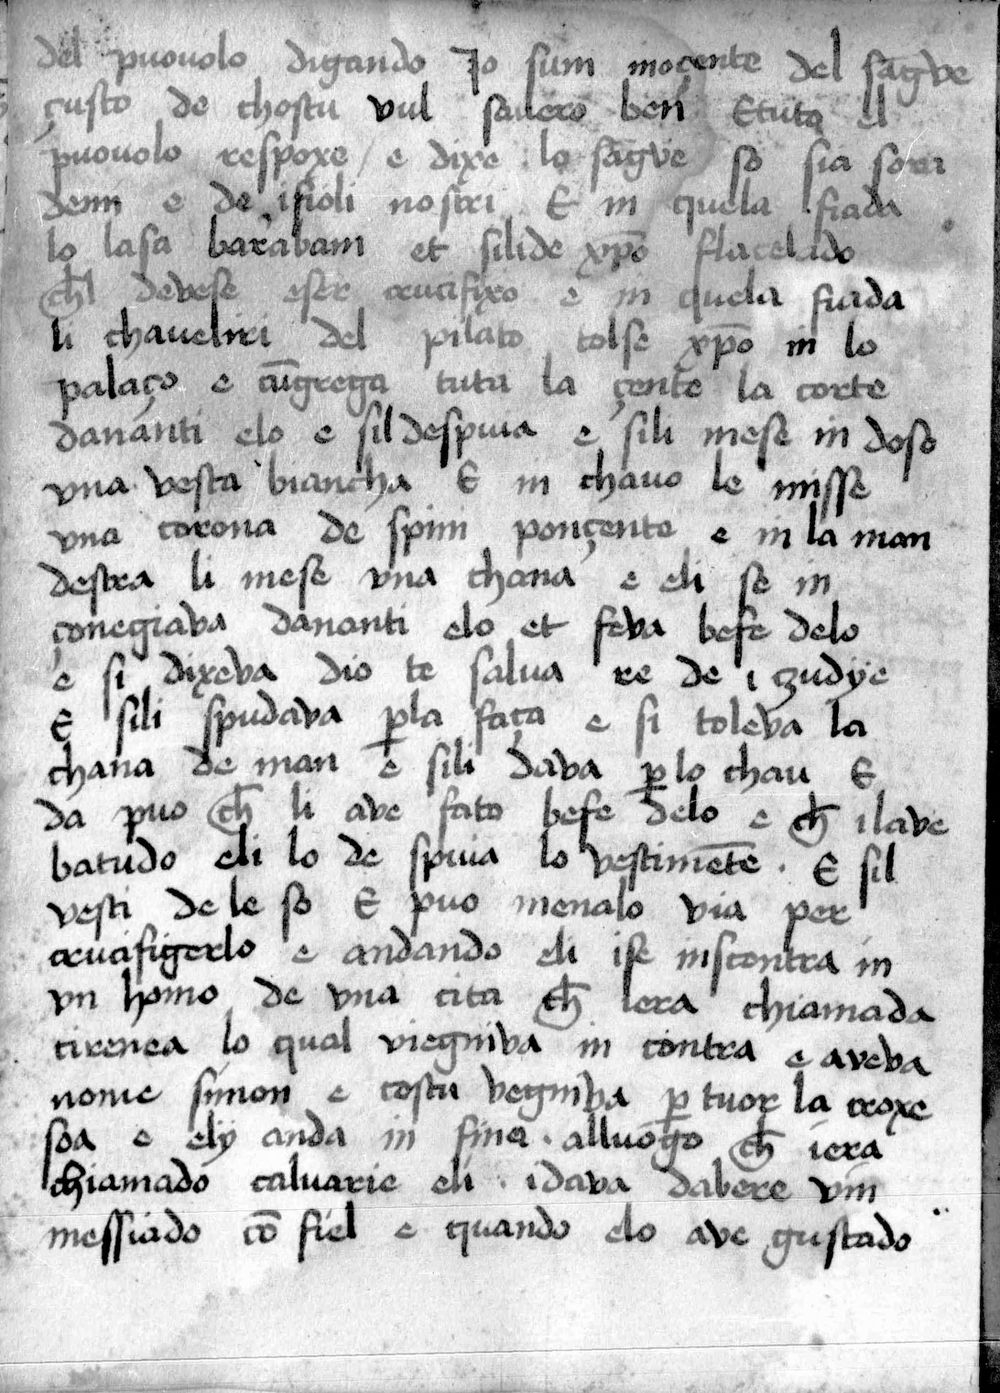 del puouolo digando Jo sum inoçente del sāgue
çusto de chostu vul sauero ben Etuto el
puouolo respoxe / e dixe lo sāgve so sia sora
denu e de ifioli nostri E in quela fiada
lo lasa barabam et silide xp̄o flacelado
ch̄l devese eser crucifixo e in quela fiada
li chaueliri del pilato tolse xp̄o in lo
palaço e cūgrega tuta la çente la corte
dananti elo e sil despuia e sili mese in doso
vna vesta biancha E in chauo le misse
vna corona de spini ponçente e in la man
destra li mese vna chana e eli se in
çonegiava dananti elo et feva befe delo
e si dixeva dio te salua re de i zudye
E sili spudava p̱la faça e si toleva la
chana de man e sili dava p̱ lo chau E
da puo ch̄ li ave fato befe delo e ch̄ ilave
batudo eli lo de spuia lo vestimēte . E sil
vesti de le so E puo menalo via per
crucifigerlo e andando eli ise inscontra in
vn homo de vna cita ch̄ iera chiamada
cirenea lo qual viegniva in contra e aveva
nome simon e costu vegniva p̱ tuor la croxe
soa e ely anda in fina . alluogo ch̄ iera
chiamado caluarie eli . idava dabere vin
messiado cō fiel e quando elo ave gustado